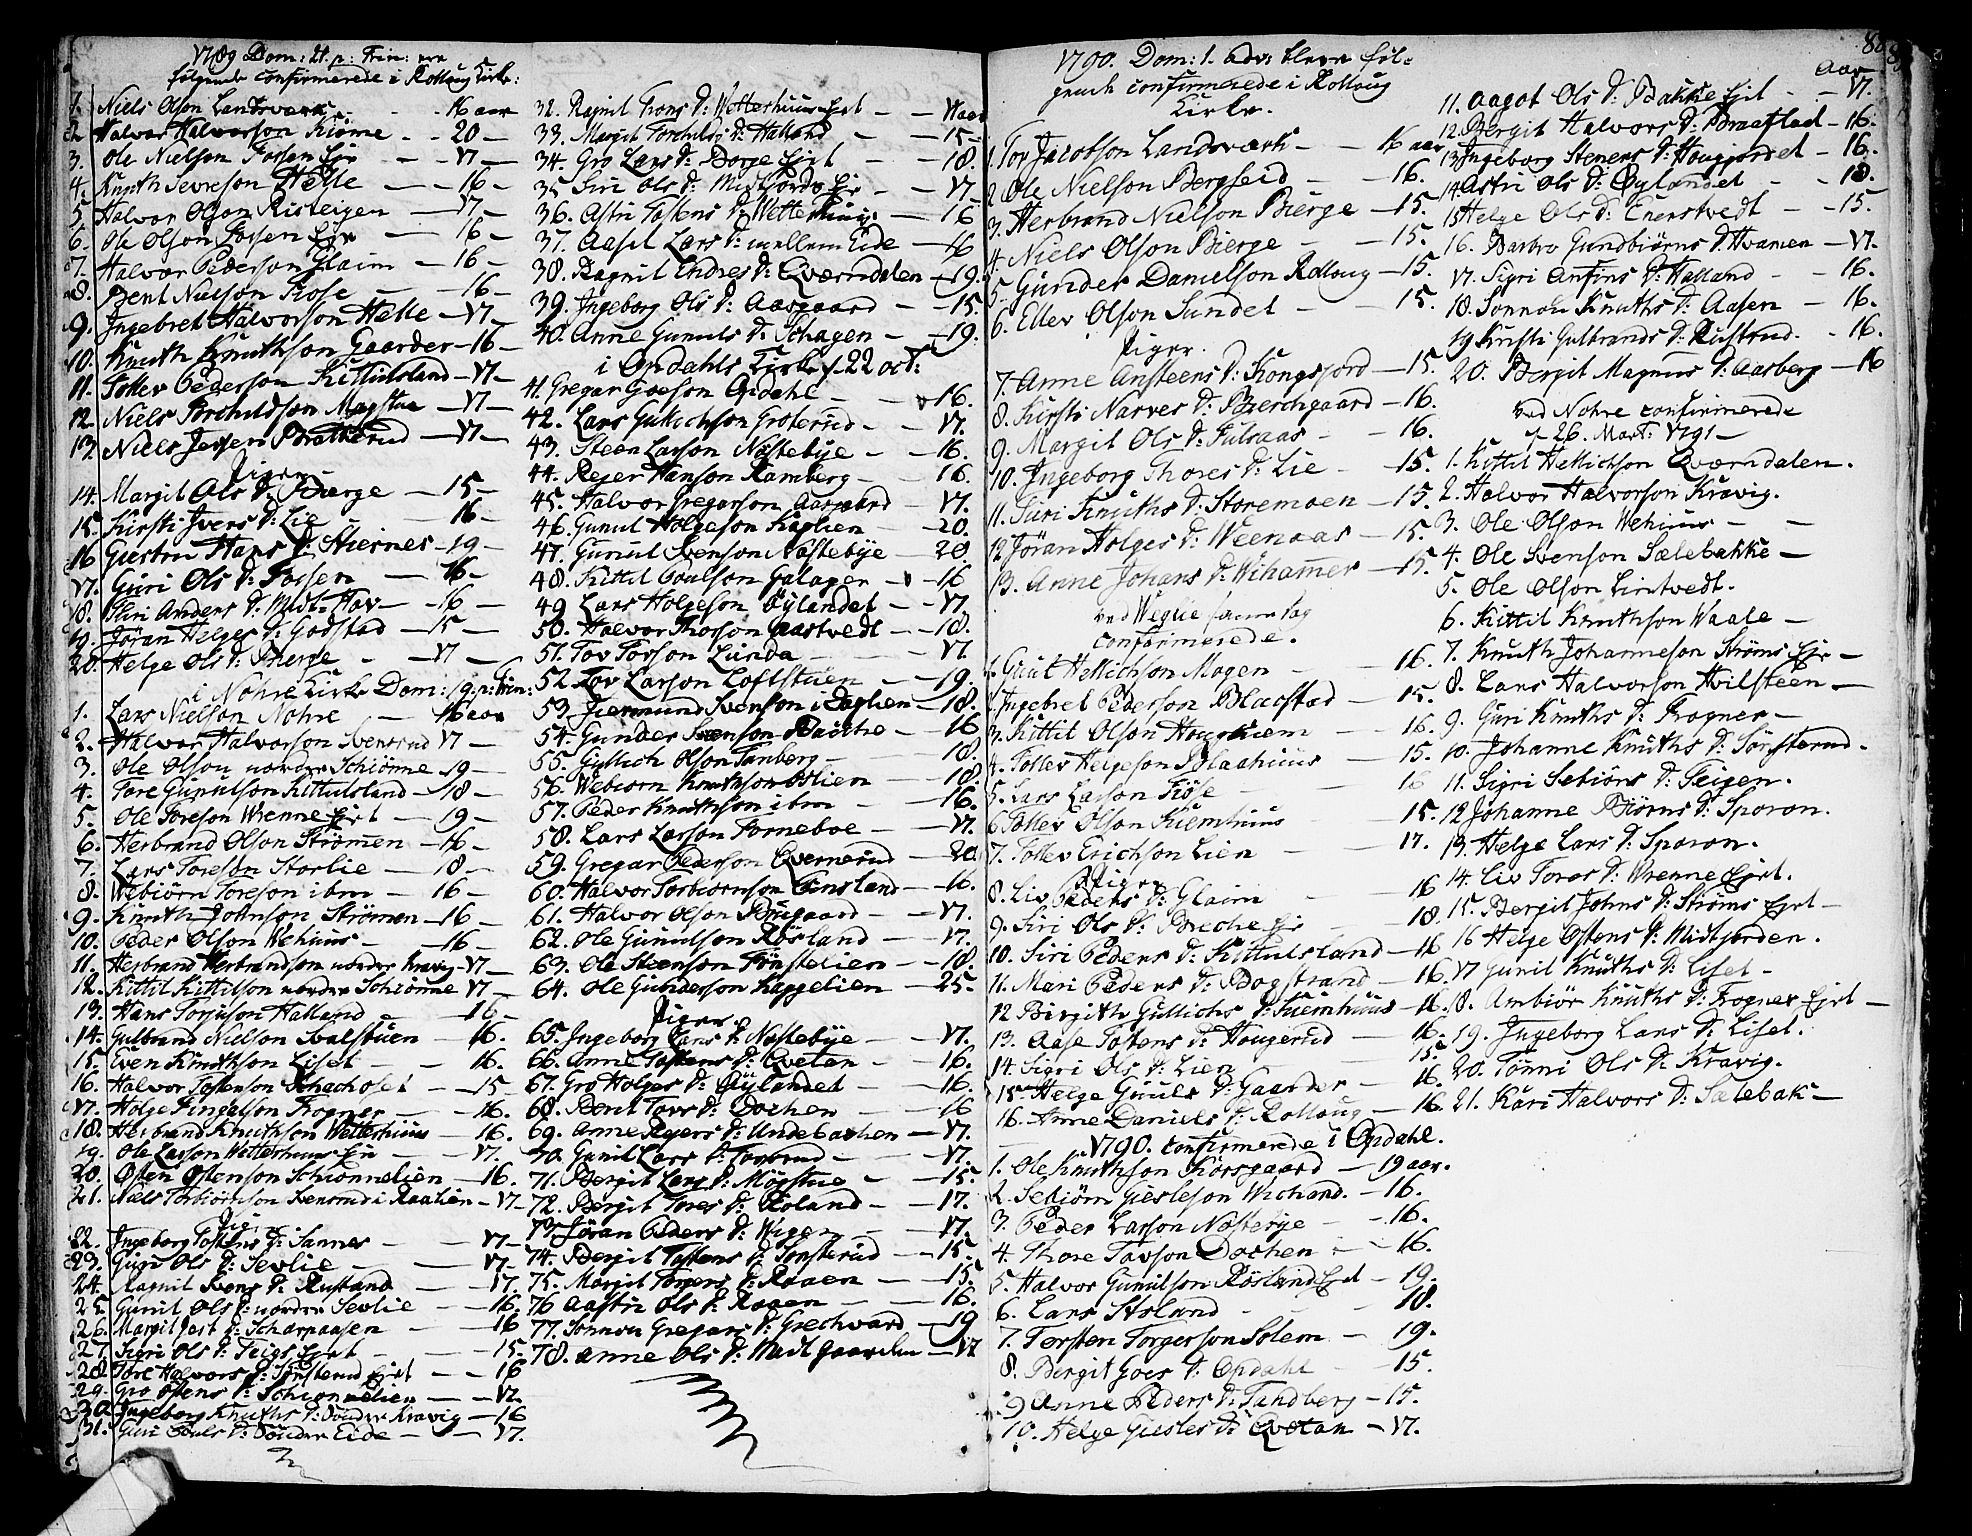 1789 Dom: 21. p: Trin: ere
følgende confirmerede i Rolloug Kirke:
1. Niels Olson Landsværk — 16 aar
2. Halvor Halvorson Kiøme — 20 —
3. Ole Nielson Fossen Eje — 17 —
4. Knuth Sevreson Helle — 16 —
5. Halvor Olson Risteigen — 17 —
6. Ole Olson Fossen Eje — 16 —
7. Halvor Pederson Glaim — 16 —
8. Bent Nielson Fiose — 16 —
9. Ingebret Halvorson Helle — 17 —
10. Knuth Knuthson Gaarder — 16 —
11. Tollev Pederson Kittulsland — 17 —
12. Niels Brohildson Mogstue — 17 —
13. Niels Jensen Bratterud — 17 —
Piger
14. Margit Ols D: Bierge — 15 —
15. Kirsti Ivers D: Lie — 16 —
16 Giertru Hans D: Stiernes — 19 —
17. Guri Ols D: Fossen — 16 —
18. Siri Anders D: Midt-Hav — 16 —
19. Jøran Helges D: Godstad — 15 —
20. Helge Ols D: Bierge — 17 —
i Nohre Kirke Dom: 19. p: Trin:
1. Lars Nielson Nohre — 16 aar
2. Halvor Halvorson Svensrud 17 —
3. Ole Olson nordre Schiønne — 19 —
4. Tore Gunulson Kittulsland — 18 —
5. Ole Toreson Wrenne Ejet — 19 —
6. Herbrand Olson Strømen — 16 —
7. Lars Toreson Storlie — 18 —
8. Webiørn Toreson ibm — 16 —
9. Knuth Johnson Strømen — 16 —
10. Peder Olson Wehuus — 16 —
11. Herbrand Herbrandson nordre Kravig — 17 —
12. Kittil Kittilson nordre Schiønne 17 —
13. Hans Torjuson Halland — 16 —
14. Gulbrand Nielson Svalstuen — 16.
15. Even Knuthson Liset — 16.
16. Halvor Tostenson — 15 —
17. Holge Fingalson Frogner — 16.
18. Herbrand Knuthson Wetterhuus — 16.
19. Ole Larson Wetterhuus Eje — 17.
20. Østen Østenson Schionnelien — 16.
21. Niels Torbiørnson Svensrud i Raaelien — 17 —
Piger
22. Ingeborg Tostens D: Sannes — 17 —
23. Guri Ols D: Sevlie — 17 —
24. Ragnil Svens D: Rustand — 17.
25. Gunil Ols D: nordre Sevlie — 16.
26. Margit Jest D: Scharpaasen — 16
27. Sigri Ols D: Teigs Ejet — 15.
28. Tore Halvors D: Tonsterud Ejet — 16
29. Gro Østens D: Schionnelien — 17.
30. Ingeborg Knuths D: Sønder Kravig — 16
31. Guri Pouls D: Sønder Eide — 17.
32. Ragnil Trons D: Wetterhuus Ejet — 17 aar
33. Margit Torchilds D: Halland — 15 —
34. Gro Lars D: Borge Ejet — 18.
35 Siri Ols D: Midtfjords Eje — 17.
36. Astri Tostens D: Wetterhuus — 16
37. Aasel Lars D: mellem Eide — 16
38. Ragnil Endres D: Qværndalen — 19.
39. Ingeborg Ols D: Aasgaard — 15.
40. Anne Gunuls D: Schagen — 19.
i Opdahls Kirke d. 22 oct:
41. Gregar Goeson Opdahl — 16.
42. Lars Gullichson Groterud — 17.
43. Steen Larson Nøstebye — 16.
44. Rejer Hanson Ramberg — 16
45. Halvor Gregarson Aasgaard — 17.
46. Gunul Holgeson Kaglien — 20.
47. Gunul Svenson Nøstebye — 20.
48. Kittil Poulson Galagen — 16
49. Lars Holgeson Øylandet — 17.
50. Halvor Thorson Aastvedt — 18.
51. Tov Torson Lunda — 17.
52. Tov Larson Loftstuen — 19.
53. Giermund Svenson i Daglien — 18.
54. Gunder Svenson Bæcke — 16
55. Gullich Olson Tanberg — 18.
56. Webiorn Knuthson Oslien — 18.
57. Peder Knuthson ibm — 16.
58. Lars Larson Forneboe — 17.
59. Gregar Pederson Qvernerud — 20
60. Halvor Torbiornson Finsland — 16.
61. Halvor Olson Biugaard — 17.
62. Ole Gunulson Røsland — 17.
63. Ole Steenson Tonstelien — 18.
64. Ole Gunderson Kaggelien — 25.
Piger
65. Ingeborg Lars D: Nøstebye — 17.
66. Anne Tostens D: Qvetan — 16.
67. Gro Holges D: Øylandet — 16.
68. Berit Tovs D: Dochen — 16
69. Anne Rejers D: Undebachen — 17.
70. Gunil Lars D: Torbrud — 17.
71. Bergit Lars D: Mogstue — 15.
72. Bergit Tores D: Roland — 17.
73 Jøran Peders D: Wigen — 17.
74. Bergit Tostens D: Tonsterud — 15.
75. Margit Torgers D: Raaen — 15.
76 Aastri Ols D: Raaen — 16.
77. Sonnou Gregars D: Grechvard — 19
78. Anne Ols D: Madtgaarden — 17
1790. Dom: 1. Adv: bleve føl-
gende confirmerede i Rolloug
Kirke.
1. Tov Jacobson Landsværk — 16 aar
2. Ole Nielson Bergseid — 16.
3. Herbrand Nielson Bierge — 15.
4. Niels Olson Bierge — 15.
5. Gunder Danielson Rolloug — 15.
6. Ellev Olson Sundet — 15.
Piger.
7. Anne Ansteens D: Kongsjord — 15.
8. Kirsti Narves D: Bierchgaard — 16.
9. Margit Ols D: Fulsaas — 16.
10. Ingeborg Thores D: Lie — 15.
11. Siri Knuths D: Storemoen — 15.
12 Jøran Holges D: Weenaas — 15.
13. Anne Johans D: Wihammer — 15.
ved Weglie samme Dag
confirmerede.
1. Guul Hellichson Mogen — 16.
2. Ingebret Pederson Blaastad — 15.
3. Kittil Olson Hougkiem — 16
4. Tollev Helgeson Blaahuus — 15.
5. Lars Larson Fiøse — 16
6 Tollev Olson Kiemhuus — 15.
7. Tollev Erichson Lien — 17.
Piger
8. Liv Peders D: Glaim — 16
9. Siri Ols D: Breche Eje — 18.
10. Siri Peders D: Kittulsland — 16
11. Mari Peders D: Bogstrand — 16.
12 Birgith Gullichs D: Kiemhuus — 16.
13. Aase Tostens D: Hougerud — 16.
14. Sigri Ols D: Lien — 15.
15. Helge Guuls D: Gaarder — 16.
16. Anne Daniels D: Rolloug — 16.
1790. confirmerede i Opdahl.
1. Ole Knuthson Korsgaard — 19 aar.
2. Sebiørn Giesleson Wichand. — 16.
3. Peder Larson Nøstebye — 16.
4. Thore Tavson Dochen — 16.
5. Halvor Gunulson Røsland Ejet — 19.
6. Lars Sisland — 18.
7. Torsten Torgerson Solem — 19.
8. Bergit Goes D: Opdahl — 15.
9 Anne Peders D: Tandberg — 15.
10. Helge Giesles D: Qvetan — 17.
Aar
11. Aagot Ols D: Bakke Ejet — 17.
12. Bergit Halvors D: Braastad — 16.
13. Ingeborg Steners D: Hougjordet — 16.
14. Astri Ols D: Øylandet — 18.
15 Helge Ols D: Enerstvedt — 15.
16. Barbro Gundbiørns D: Hvamen — 17.
17. Sigri Anfins D: Halland — 16.
18. Sonnou Knuths D: Aasen — 16.
19 Kirsti Gulbrands D: Rustrud. — 16.
20. Bergit Magnus D: Aasberg — 16
ved Nohre confirmerede
d. 26. Mart: 1791 —
1. Kittil Hellichson Qværndalen.
2. Halvor Halvorson Kravig.
3. Ole Olson Wehuus —
4. Ole Svenson Sælebakke —
5. Ole Olson Lintvedt.
6. Kittil Knuthson Waale —
7. Knuth Johanneson Strøms Eje —
8. Lars Halvorson Hvilsteen —
9. Guri Knuths D: Frogner —
10. Johanne Knuths D: Sonsterud.
11. Sigri Sebiørns D: Teigen.
12 Johanne Biørns D: Sporan.
13. Helge Lars D: Sporan.
14. Liv Tores D: Wrenne Ejet.
15. Bergit Johns D: Strøms Ejet —
16 Helge Østens D: Midtjorden.
17 Gunil Knuths D: Liset —
18. Ambiør Knuths D: Frogner Ejet —
19. Ingeborg Lars D: Liset.
20. Tonni Ols D: Kravig.
21. Kari Halvors D: Sælebak —